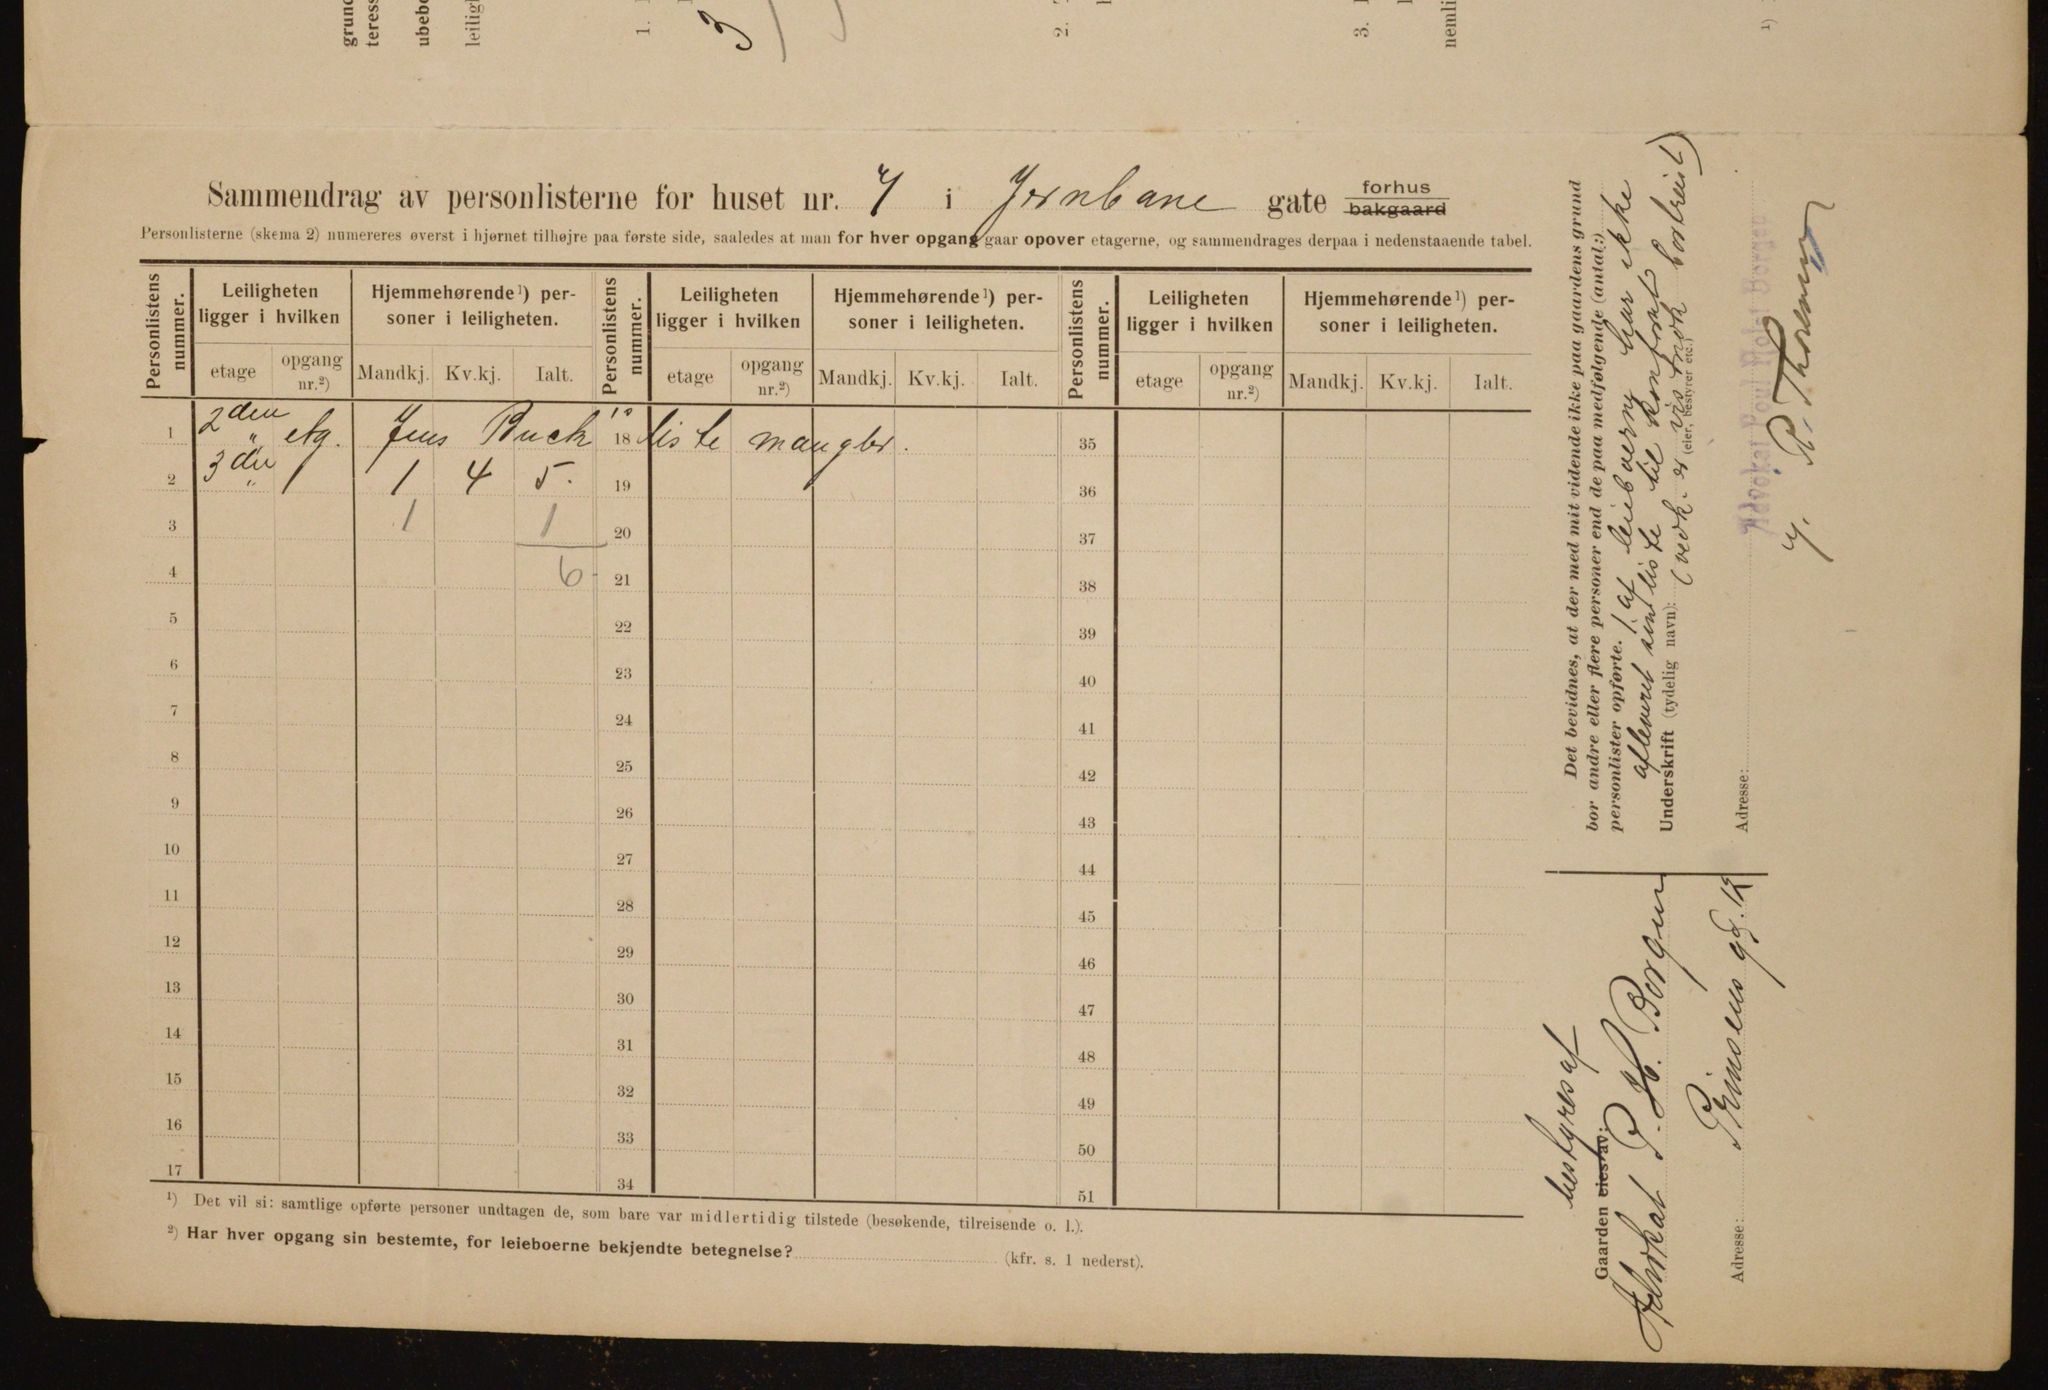 grund
teress
ubebo
leiligh
1.
3
2.
3.
nemli
1)
Sammendrag av personlisterne for huset nr. 7 i Jernbane gate forhus
bakgaard
Personlisterne (skema 2) numereres øverst i hjørnet tilhøjre paa første side, saaledes at man for hver opgang gaar opover etagerne, og sammendrages derpaa i nedenstaaende tabel.
Personlistens nummer. Leiligheten ligger i hvilken Hjemmehørende 1) personer i leiligheten. Personlistens nummer. Leiligheten ligger i hvilken Hjemmehørende 1) personer i leiligheten. Personlistens nummer. Leiligheten ligger i hvilken Hjemmehørende 1) personer i leiligheten.
etage opgang nr.2) Mandkj. Kv.kj. Ialt. etage opgang nr.2) Mandkj. Kv.kj. Ialt. etage opgang nr.2) Mandkj. Kv.kj. Ialt.
1 2den " etg. Jens Buck's 18 liste mangler. 35
2 3die " 1 4 5. 19 36
3 1 1 20 37
4 6 21 38
5 22 39
6 23 40
7 24 41
8 25 42
9 26 43
10 27 44
11 28 45
12 29 46
13 30 47
14 31 48
15 32 49
16 33 50
17 34 51
1) Det vil si: samtlige opførte personer undtagen de, som bare var midlertidig tilstede (besøkende, tilreisende o. l.).
2) Har hver opgang sin bestemte, for leieboerne bekjendte betegnelse? (kfr. s. 1 nederst).
Det bevidnes, at der med mit vidende ikke paa gaardens grund
bor andre eller flere personer end de paa medfølgende (antal:)
personlister opførte. 1 af leieboerne har ikke
afleveret sin liste til kontoret
Underskrift (tydelig navn): (vedk. er vistnok bortreist)
(eier, bestyrer etc.)
Advokat Poul Holst Borgen
Adresse:
R. Thoresen
bestyres af
Gaarden eies av:
Advokat P. H. Borgen
Adresse: Prinsens gd. 12